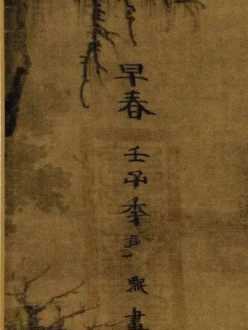 早春 壬子年郭熙畫